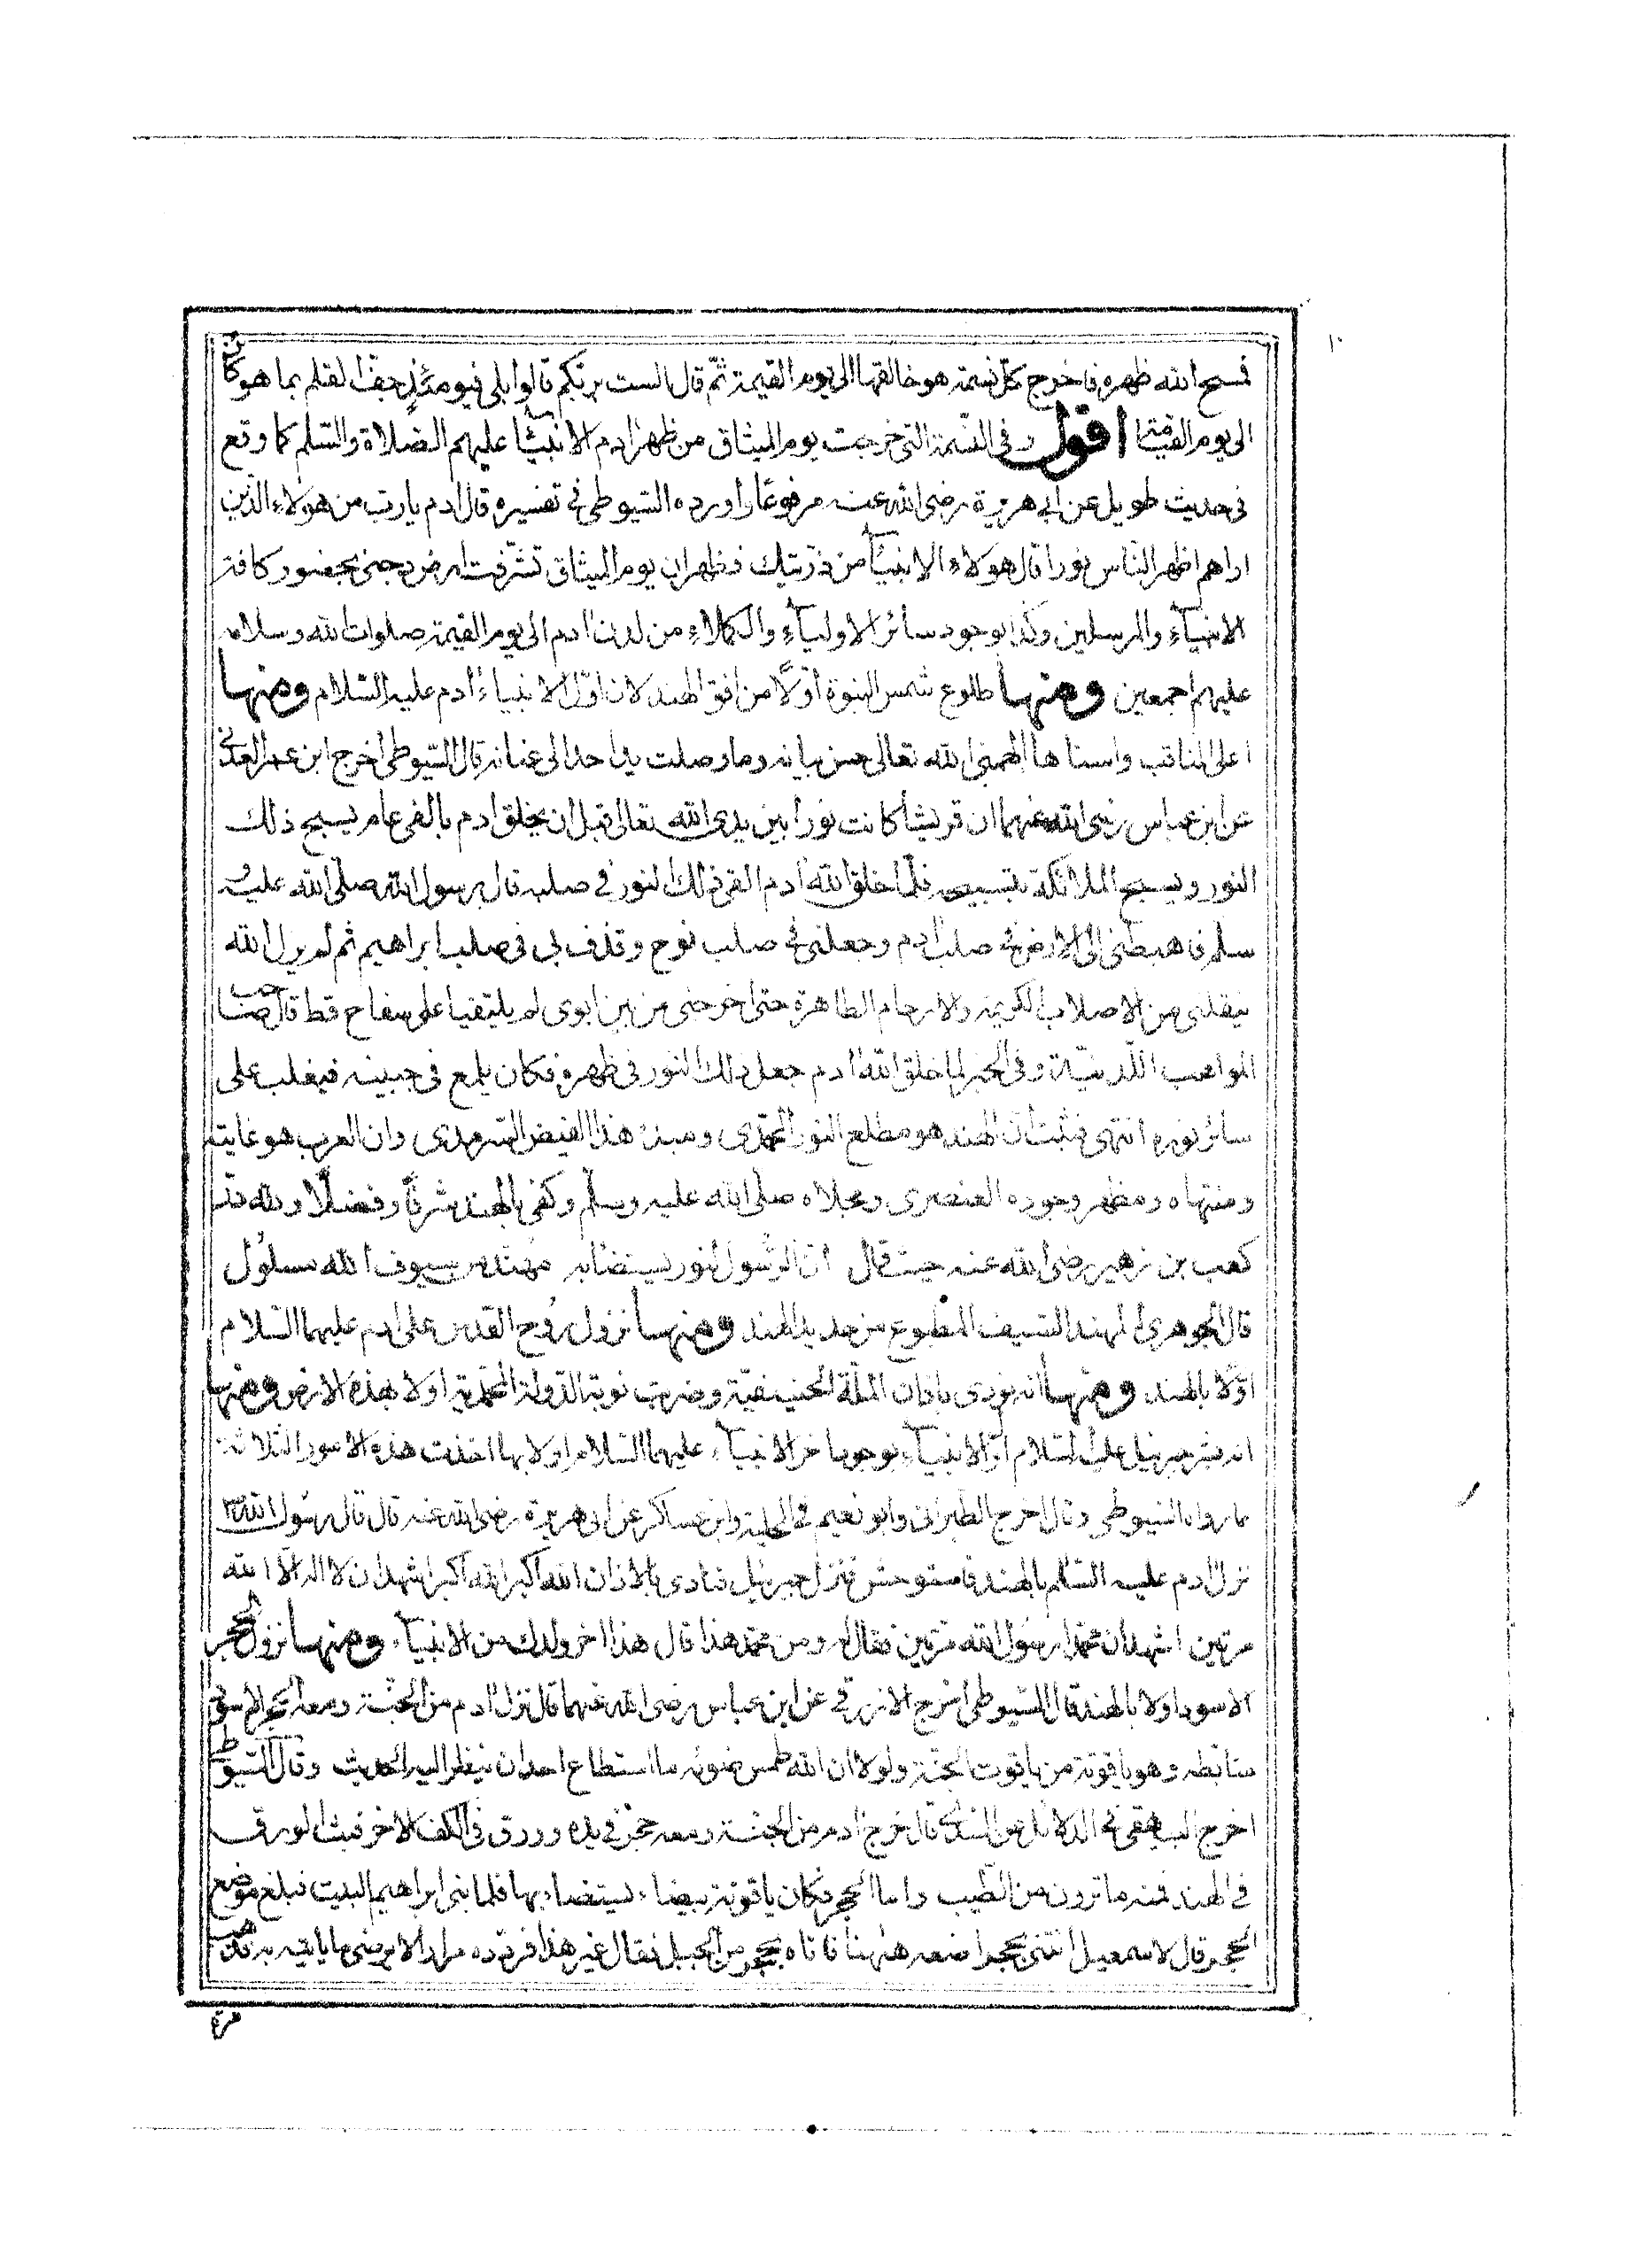 ١٠
فمسح الله ظهره فاخرج كل نسمة هو خالقها الى يوم القيمة ثم قال الست بربكم قالوا بلى فيومئذ جف القلم بما هو كائن
الى يوم القيمة اقول وفى النسمة التى خرجت يوم الميثاق من ظهر ادم الانبياء عليهم الصلاة والسلم كما وقع
فى حديث طويل عن ابى هريرة رضى الله عنه مرفوعا اورده السيوطى فى تفسيره قال ادم يا رب من هولاء الذين
اراهم اظهر الناس نورا قال هولاء الانبياء من ذريتك فظهر ان يوم الميثاق تشرفت ارض دجنى بحضور كافة
الانبياء والمرسلين وكذا بوجود سائر الاولياء والكملاء من لدن ادم الى يوم القيمة صلوات الله وسلامه
عليهم اجمعين ومنها طلوع شمس النبوة اولا من افق الهند لان اول الانبياء ادم عليه السلام ومنها
اعلى المناقب واسناها الهمنى الله تعالى حسن بيانه وما وصلت يد احد الى عنانه قال السيوطى اخرج ابن عمر العدنى
عن ابن عباس رضى الله عنهما ان قريشا كانت نورا بين يدى الله تعالى قبل ان يخلق ادم بالفى عام يسبح ذلك
النور ويسبح الملائكة بتسبيحه فلما خلق الله ادم القى ذلك النور فى صلبه قال رسول الله صلى الله عليه و
سلم فاهبطنى الى الارض فى صلب ادم وجعلنى فى صلب نوح وقذف بى فى صلب ابراهيم ثم لم يزل الله
ينقلنى من الاصلاب الكريمة والارحام الطاهرة حتى اخرجنى من بين ابوى لم يلتقيا على سفاح قط قال صاحب
المواهب اللدنية وفى الخبر لما خلق الله ادم جعل ذلك النور فى ظهره فكان يلمع فى جبينه فيغلب على
سائر نوره انتهى فثبت ان الهند هو مطلع النور المحمدى ومبدء هذا الفيض السرمدى وان العرب هو غايته
ومنتهاه ومظهر وجوده العنصرى ومجلاه صلى الله عليه وسلم وكفى بالهند شرفا وفضلا ولله در
كعب بن زهير رضى الله عنه حيث قال ان الرسول لنور يستضاء به مهند من سيوف الله مسلول
قال الجوهرى المهند السيف المطبوع من حديد الهند ومنها نزول روح القدس على ادم عليهما السلام
اولا بالهند ومنها انه نودى باذان الملة الحنيفية وضربت نوبة الدولة المحمدية اولا بهذه الارض ومنها
انه بشر جبرئيل عليه السلام اول الانبياء بوجود اخر الانبياء عليهما السلام اولا بها اخذت هذه الامور الثلاثة
مما رواه السيوطى وقال اخرج الطبرانى وابو نعيم فى الحلية وابن عساكر عن ابى هريرة رضى الله عنه قال قال رسول الله
نزل ادم عليه السلم بالهند فاستوحش فنزل جبرئيل فنادى بالاذان الله اكبر الله اكبر اشهد ان لا اله الا الله
مرتين اشهد ان محمدا رسول الله مرتين فقال له ومن محمد هذا قال هذا اخر ولدك من الانبياء ومنها نزول الحجر
الاسود اولا بالهند قال السيوطى اخرج الازرقى عن ابن عباس رضى الله عنهما قال نزل ادم من الجنة ومعه الحجر الاسود
متابطه وهو ياقوتة من ياقوت الجنة ولولا ان الله طمس ضوئه ما استطاع احد ان ينظر اليه الحديث وقال السيوطى
اخرج البيهقى فى الدلائل عن السدى قال خرج ادم من الجنة ومعه حجر فى يده وورق فى الكف الاخر فبث الورق
فى الهند فمنه ما ترون من الطيب واما الحجر فكان ياقوتة بيضاء يستضاء بها فلما بنى ابراهيم البيت فبلغ موضع
الحجر قال لاسمعيل ائتنى بحجر اضعه ههنا فاتاه بحجر من الجبل فقال غير هذا فرده مرارا لا يرضى ما ياتيه به